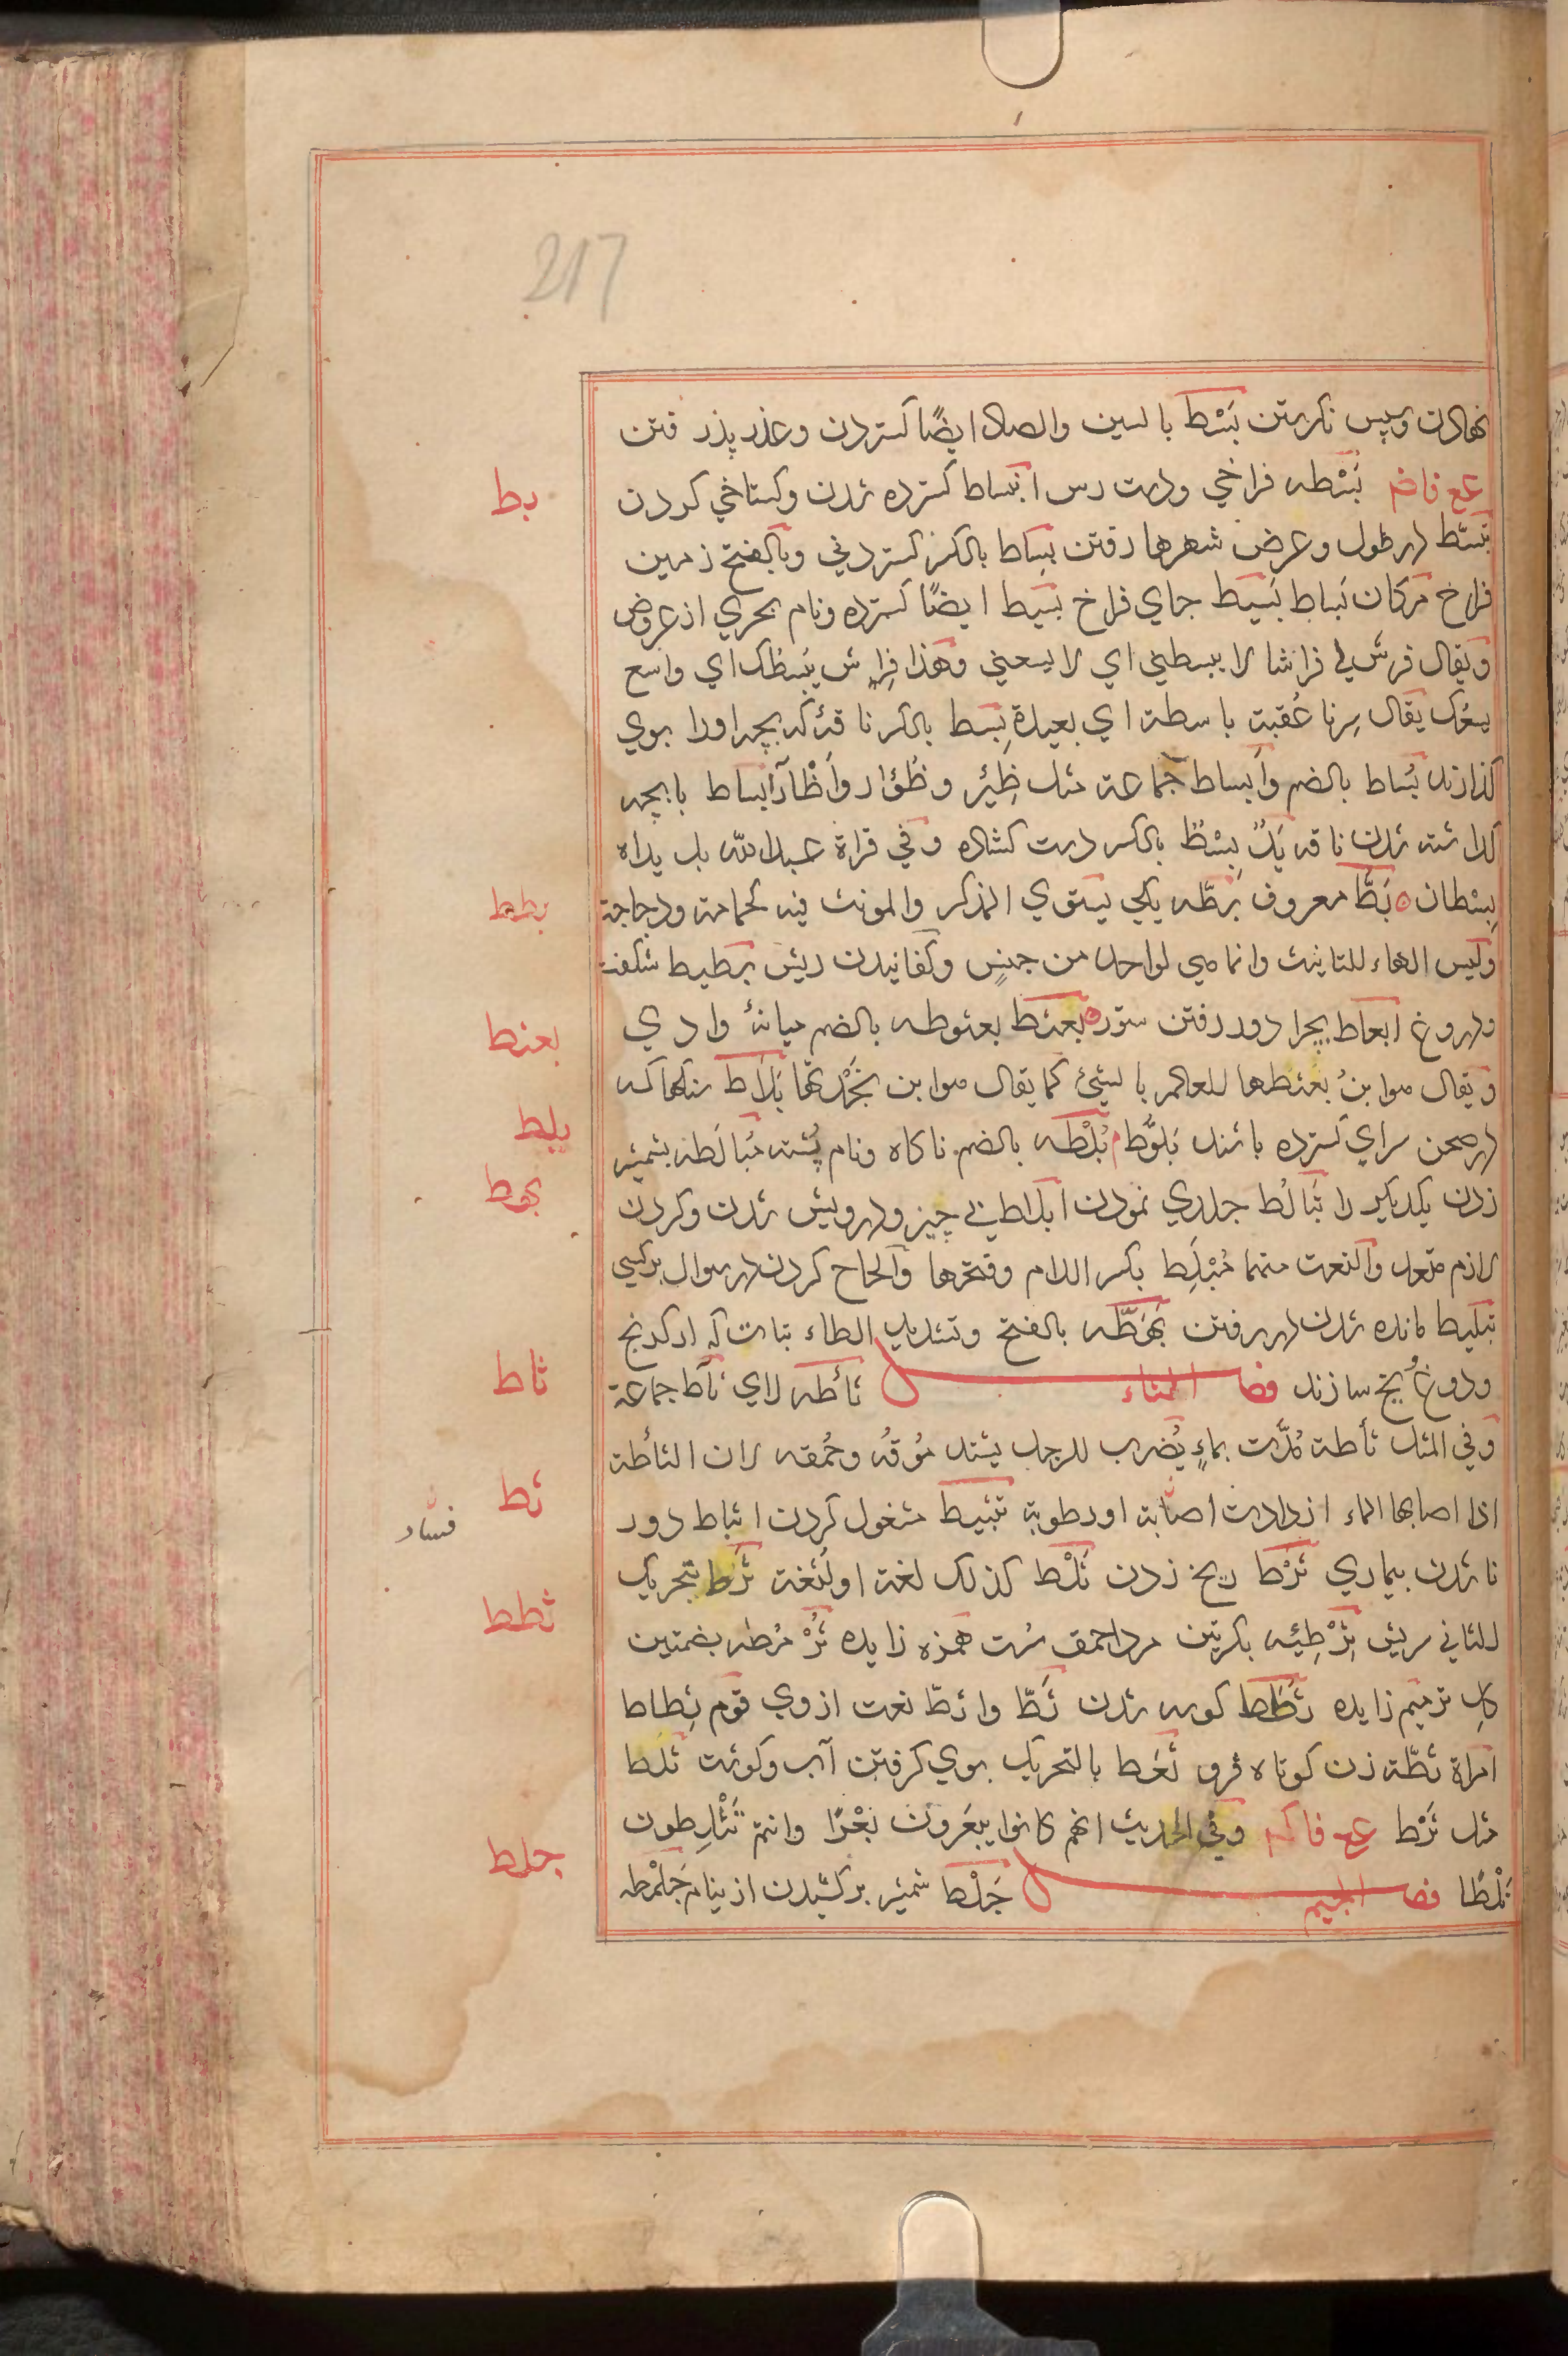 217
نهادن وپس نگریستن بَسْط بالسین والصاد ایضًا کستردن وعذر پذرفتن
بَسْطه فراخي ودست رس انبساط کسترده شدن وکستاخي کردن
تبسّط در طول وعرض شهرها رفتن بساط بالکسر کستردني وبالفتح زمین
فراخ مکان بَساط بَسیط جاي فراخ بسیط ایضًا کسترده ونام بحري از عروض
ویقال فرش لي فراشا لا یبسطني اي لا یسعني وهذا فراش یَبسُطک اي واسع
یسعک یقال سِرنا عُقبة باسطة اي بعیدة بِسط بالکسر ناقهٔ که بچه اورا بوي
کذارند بُساط بالضم وابساط جماعة مثل ظِئر وظُؤار واَظْآر ابساط با بچه
کذاشته شدن ناقه یَدٌ بِسْطٌ بالکسر دست کشاده وفي قراة عبدالله بل یداه
بِسْطان بَطّ معروف بَطّه یکي یستوي المذکر والمونث فیه کحمامة ودجاجة
ولیس الهاء للتانیث وانما هي لواحد من جنسٍ وکفانیدن ریش بَطیط شکفت
ودروغ ابعاط بچرا دور رفتن ستور بُعثط بعثوطه بالضم میانهٔ وادي
ویقال هو ابنُ بُعثطها للعالم بالشيء کما یقال هو ابن بَجْدتها بَلاط سنکها که
در صحن سراي کسترده باشند بَلوُّط بُلْطه بالضم ناکاه ونام پشته مُبالَطه بشمشیر
زدن یکدیکر را تَبالُط جلدي نمودن ابلاط بي چیز ودرویش شدن وکردن
لازم متعد والنعت منهما مُبْلَِط بکسر اللام وفتحها والحاح کردن در سوال بر کسي
تبلیط مانده شدن در رفتن بَهَطّه بالفتح وتشدید الطاء تبات که از کرنج
ودوغ ویخ سازند فصل الثاء ثأطه لاي ثأط جماعة
وفي المثل ثأطة مُدّت بماءٍ یُضرب للرجل یشتد مُوقُه وحُمقه لان الثأطة
اذا اصابها الماء ازدادت اصابة او رطوبة تثبیط مشغول کردن اثباط دور
ناشدن بیماري ثَرْط ریخ زدن ثَلْط کذلک لغة او لُثغة ثَرَط بتحریک
للثاني سریش ثِرْطِئه بکسرتین مرد احمق سُست همزه زایده ثُرْمُطه بضمتین
کل تر میم زایده ثَطَط کوسه شدن ثَطّ واثطّ نعت از وي قوم ثِطاط
امراة ثطّة زن کوتاه ثَعَط بالتحریک بوي کرفتن آب وکوشت ثلط
مثل ثَرْط وفي الحدیث انهم کانوا یبعَرون بَعْرًا وانتم تَثْلِطون
ثَلْطًا فصل الجیم جَلْط شمشیر بر کشیدن از نیام جَلْمَطه
بط
بطط
بعثط
بلط
بهط
ثاط
ثط
ثطط
جلط